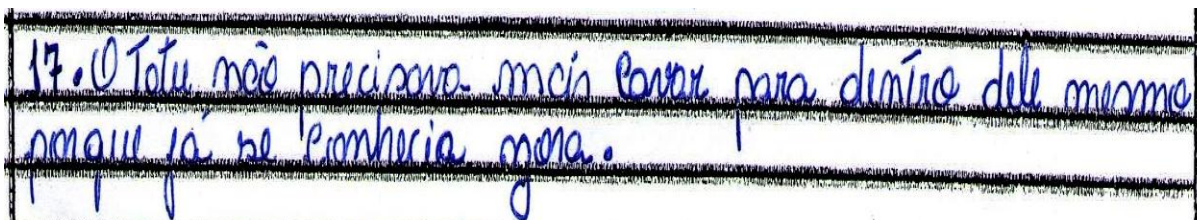 17. O Tatu não precisava mais cavar para dentro dele mesmo
porque já se conhecia gora.